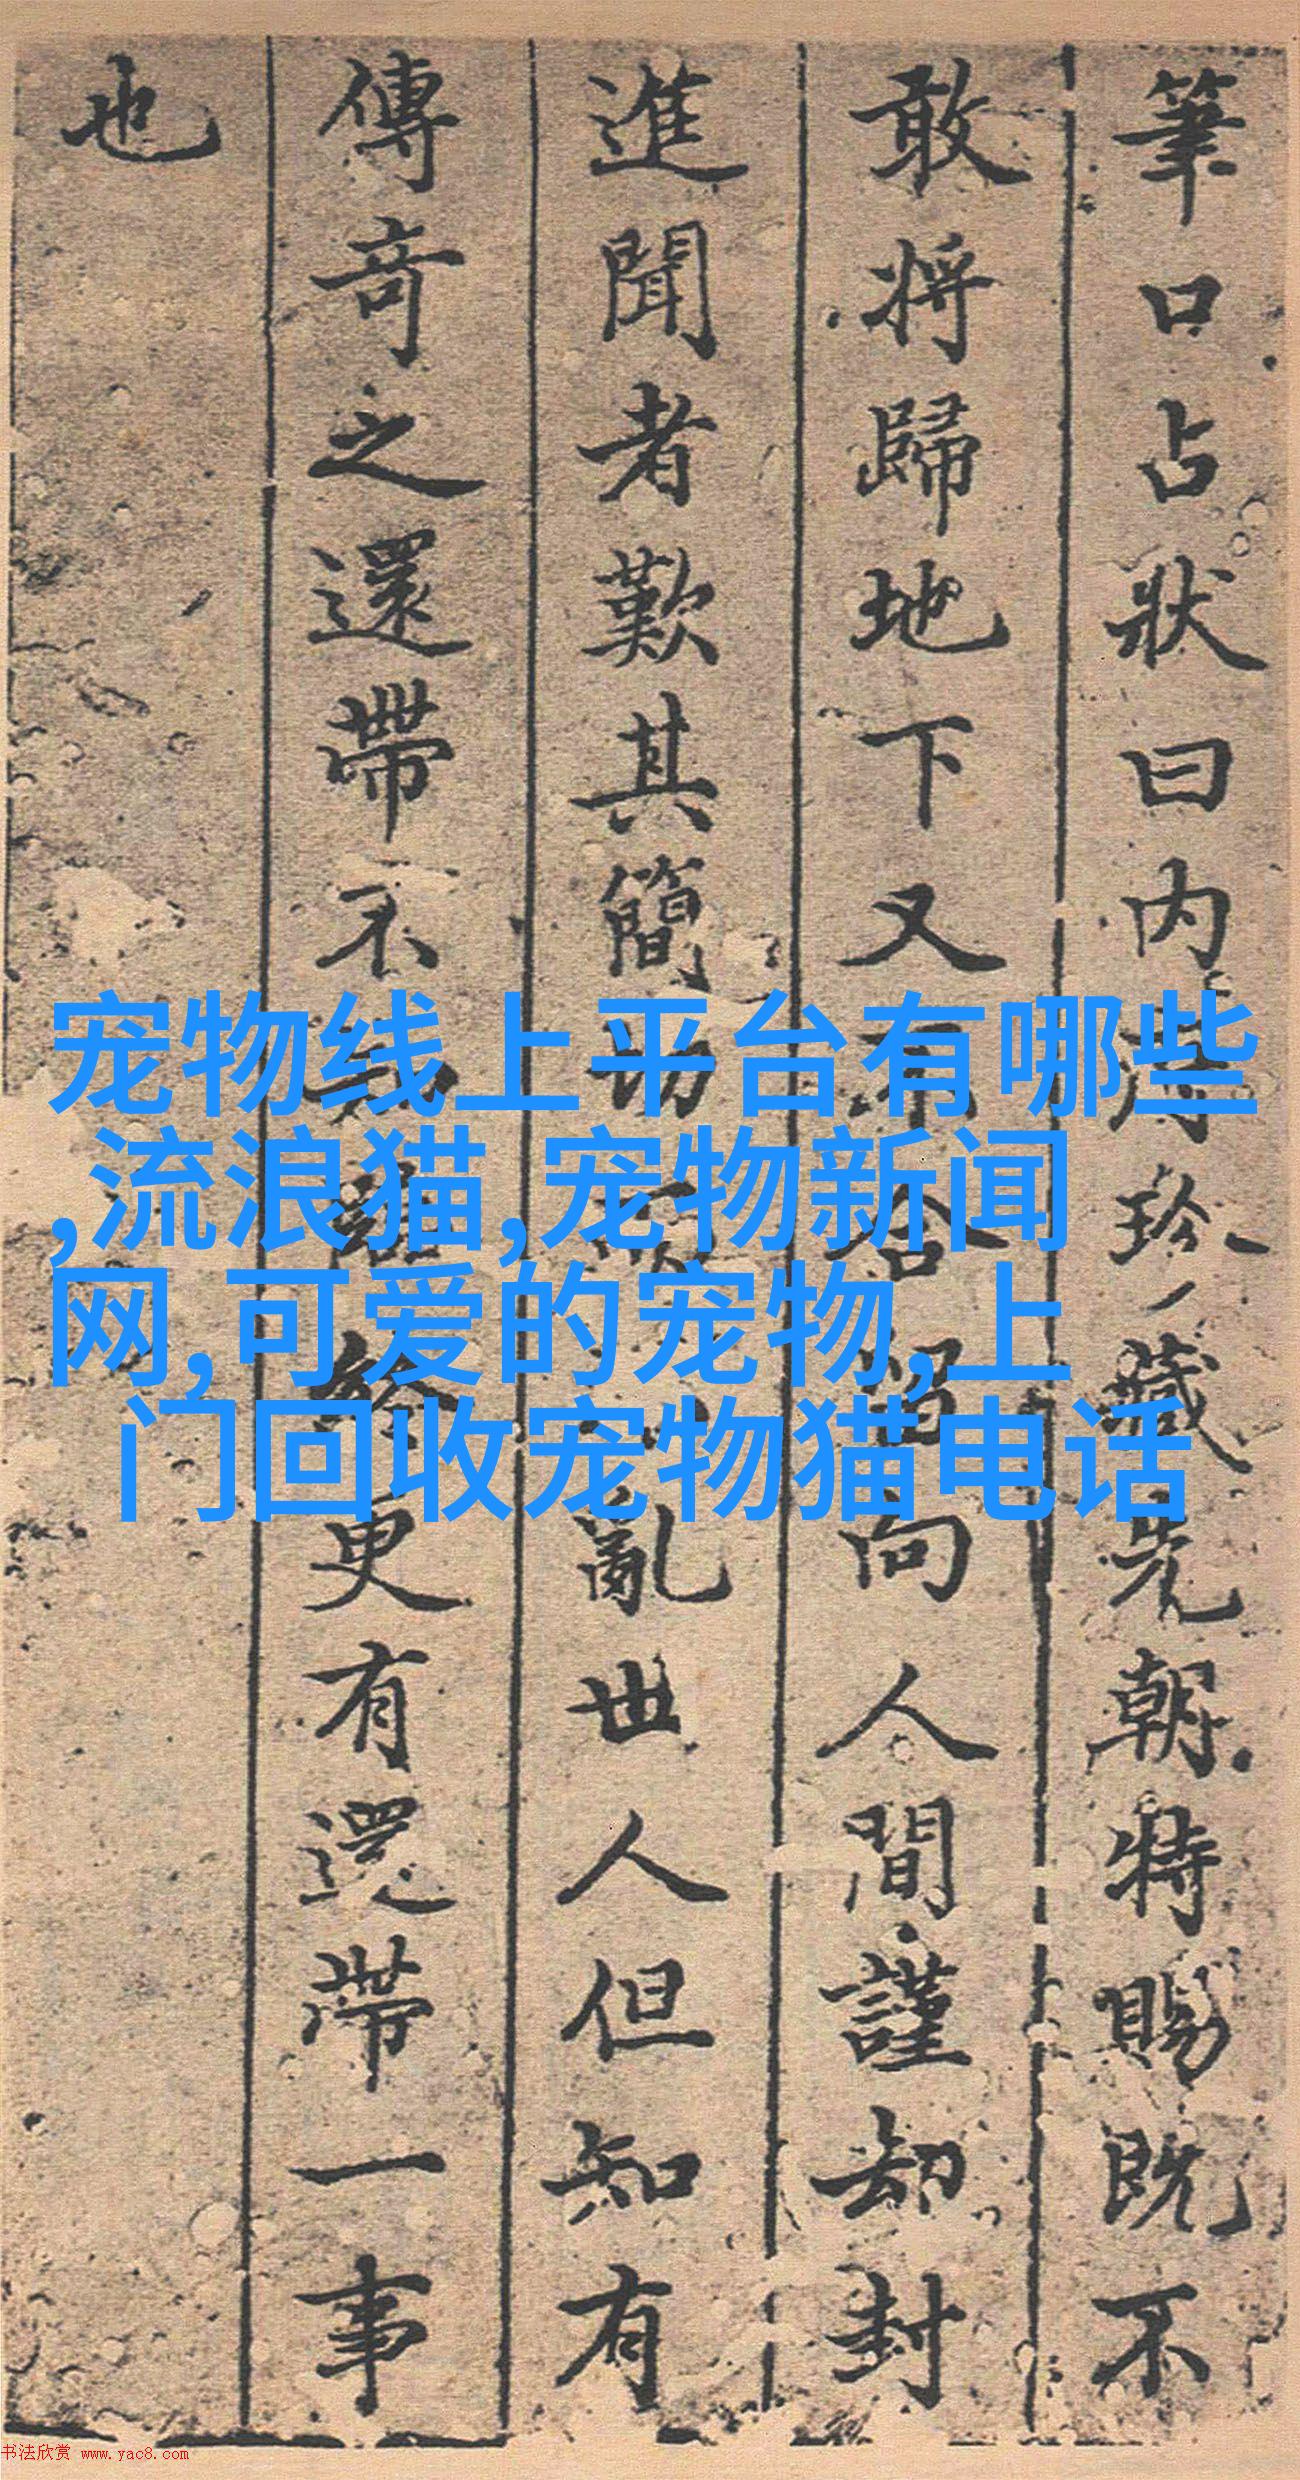 筆口占狀曰内珍藏先朝特賜既不
敢将歸地下又不合留向人間謹却封
進聞者歎其簡切亂世人但知有
傳竒之還帶不更有還帶一事
也
宠物线上平台有哪些
,流浪猫,宠物新闻
网,可爱的宠物,上
门回收宠物猫电话
书法欣赏 www.yac8.com